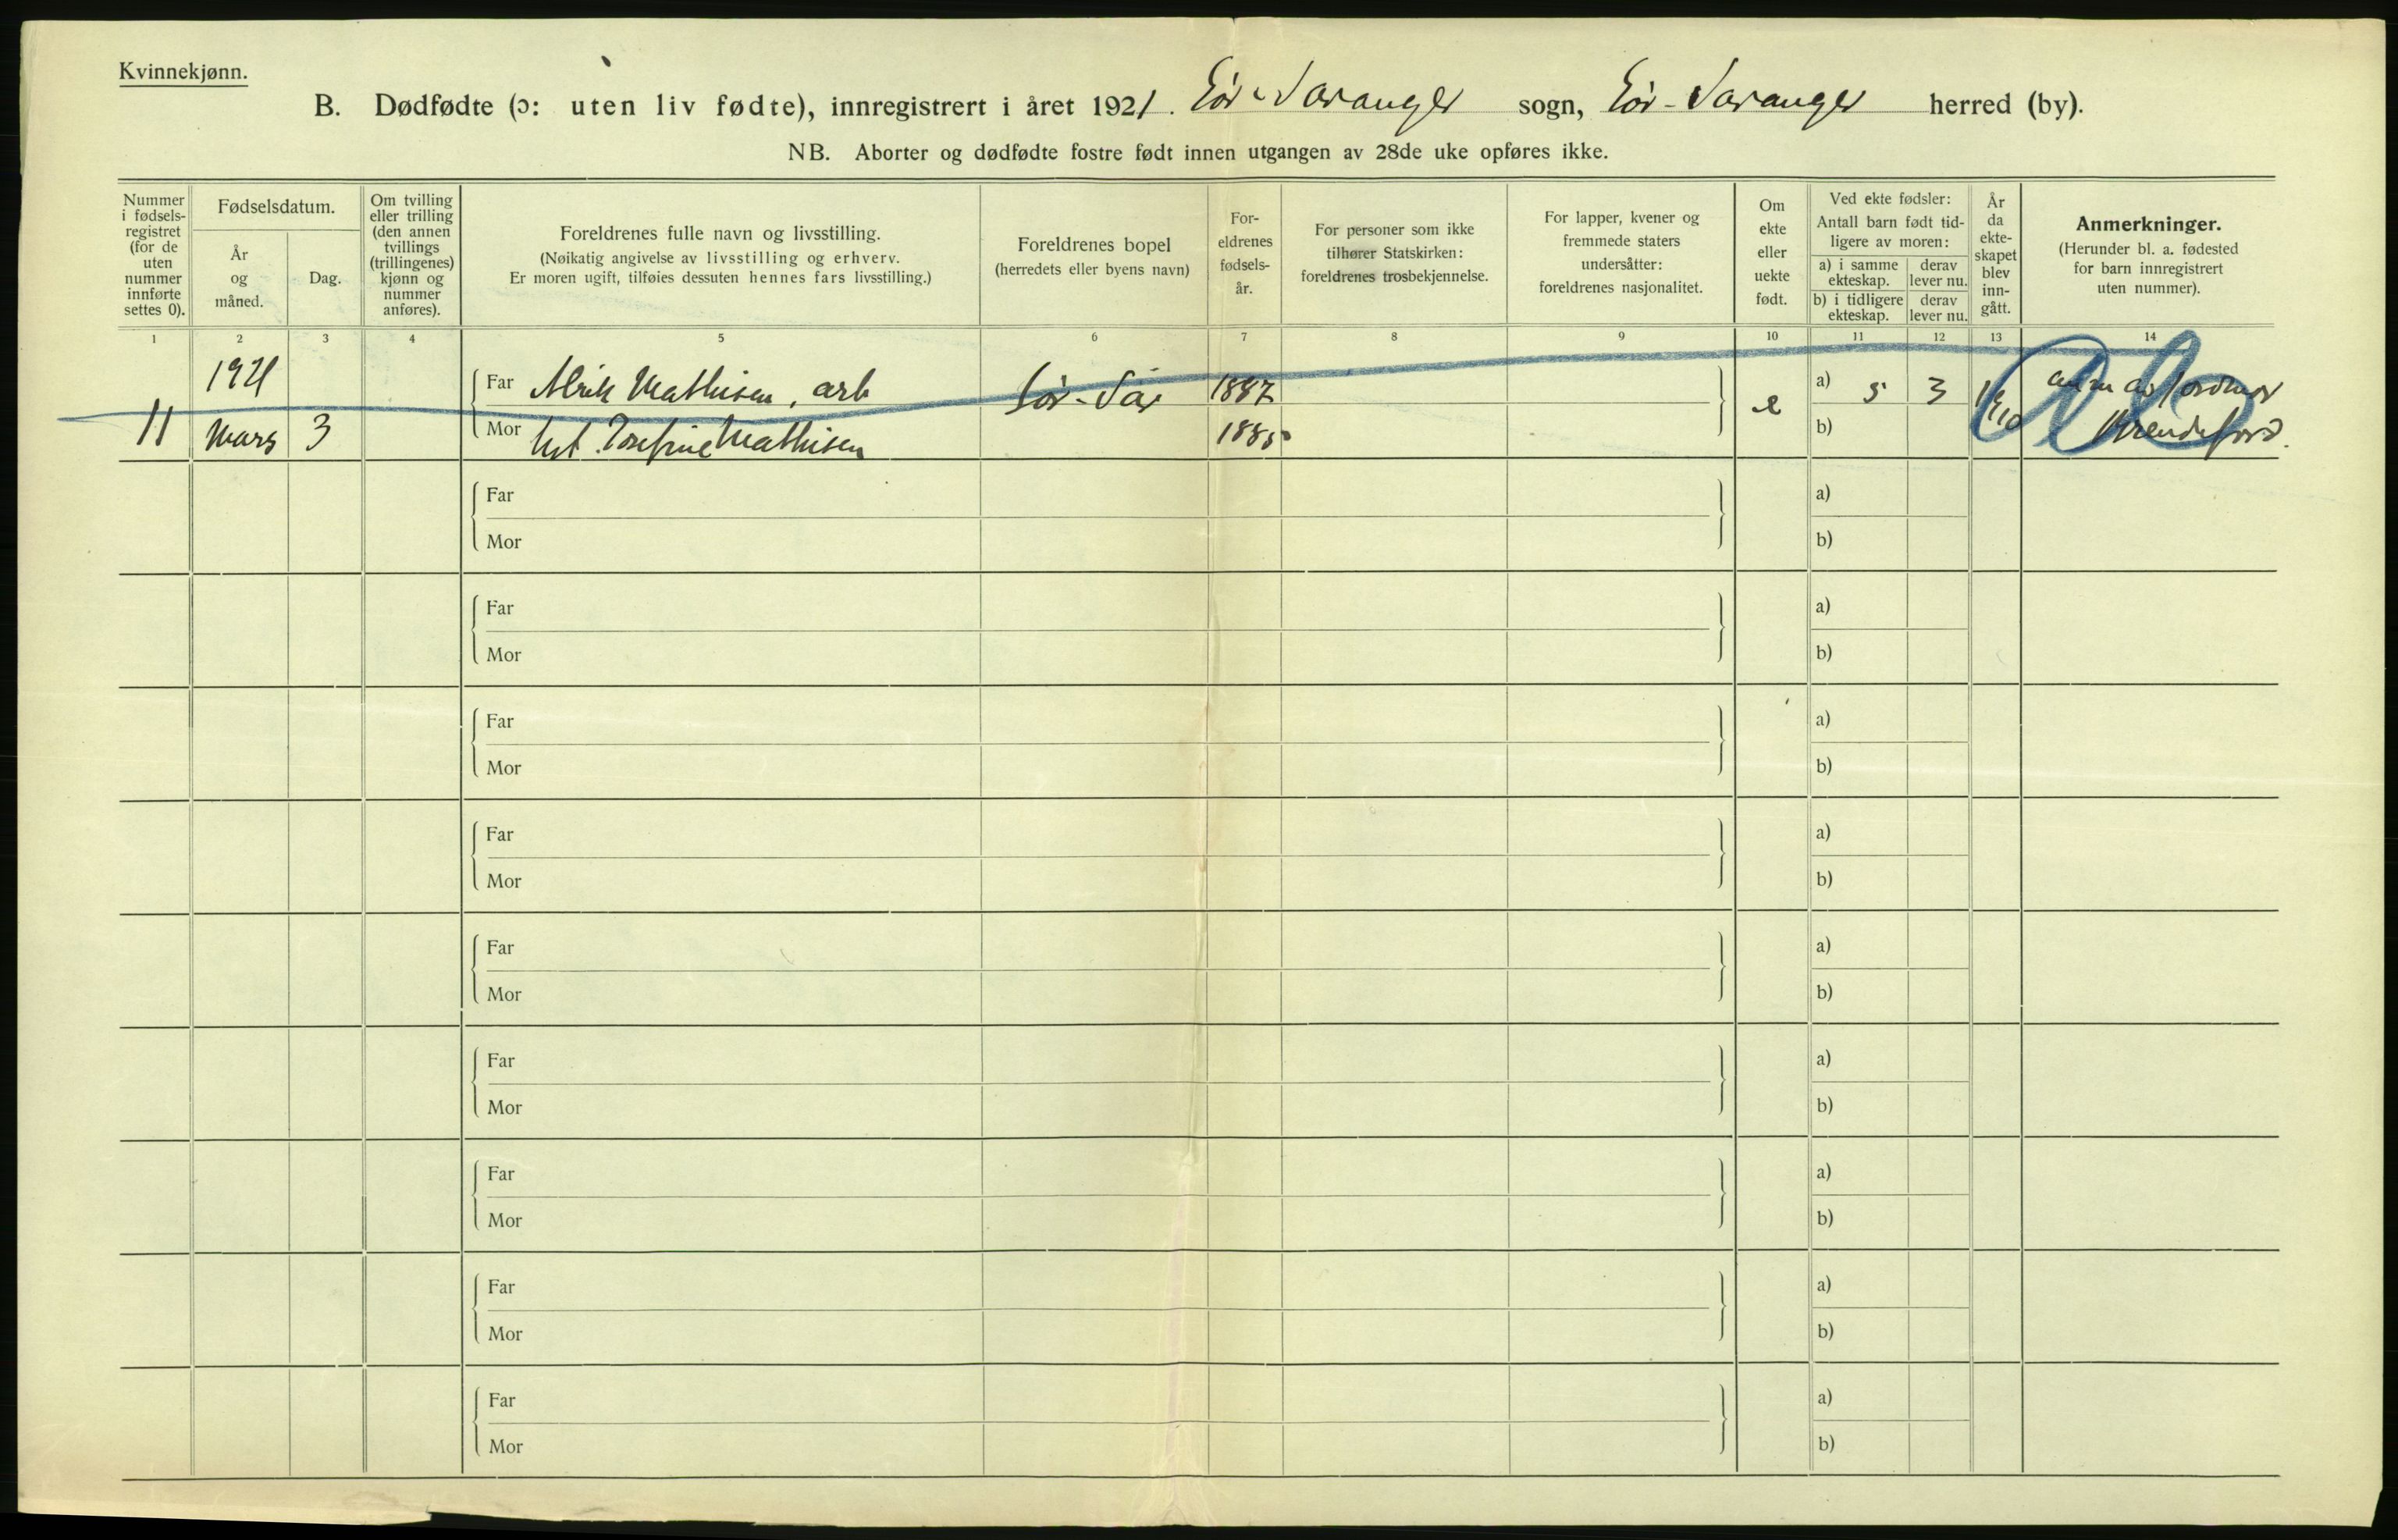 Kvinnekjønn.
B. Dødfødte (ɔ: uten liv fødte), innregistrert i året 1921. Sør-Varanger sogn, Sør-Varanger herred (by).
NB. Aborter og dødfødte fostre født innen utgangen av 28de uke opføres ikke.
Nummer
i fødsels-
registret
(for de
uten
nummer
innførte
settes 0).
Fødselsdatum.
År
og
måned.
Dag.
Om tvilling
eller trilling
(den annen
tvillings
(trillingenes)
kjønn og
nummer
anføres).
Foreldrenes fulle navn og livsstilling.
(Nøikatig angivelse av livsstilling og erhverv.
Er moren ugift, tilføies dessuten hennes fars livsstilling.)
Foreldrenes bopel
(herredets eller byens navn)
For-
eldrenes
fødsels-
år.
For personer som ikke
tilhører Statskirken:
foreldrenes trosbekjennelse.
For lapper, kvener og
fremmede staters
undersåtter:
foreldrenes nasjonalitet.
Om
ekte
eller
uekte
født.
Ved ekte fødsler:
Antall barn født tid-
ligere av moren:
a) i samme
ekteskap.
derav
lever nu.
b) i tidligere
ekteskap.
derav
lever nu.
År
da
ekte-
skapet
blev
inn-
gått.
Anmerkninger.
(Herunder bl. a. fødested
for barn innregistrert
uten nummer).
1 2 3 4 5 6 7 8 9 10 11 12 13 14
1921
Far Alrik Mathisen, arb Sør-Var 1887 e a) 5 3 1910
11 Mars 3 Mor Josefine Mathisen 1885 b)
Far a)
Mor b)
Far a)
Mor b)
Far a)
Mor b)
Far a)
Mor b)
Far a)
Mor b)
Far a)
Mor b)
Far a)
Mor b)
Far a)
Mor b)
Far a)
Mor b)